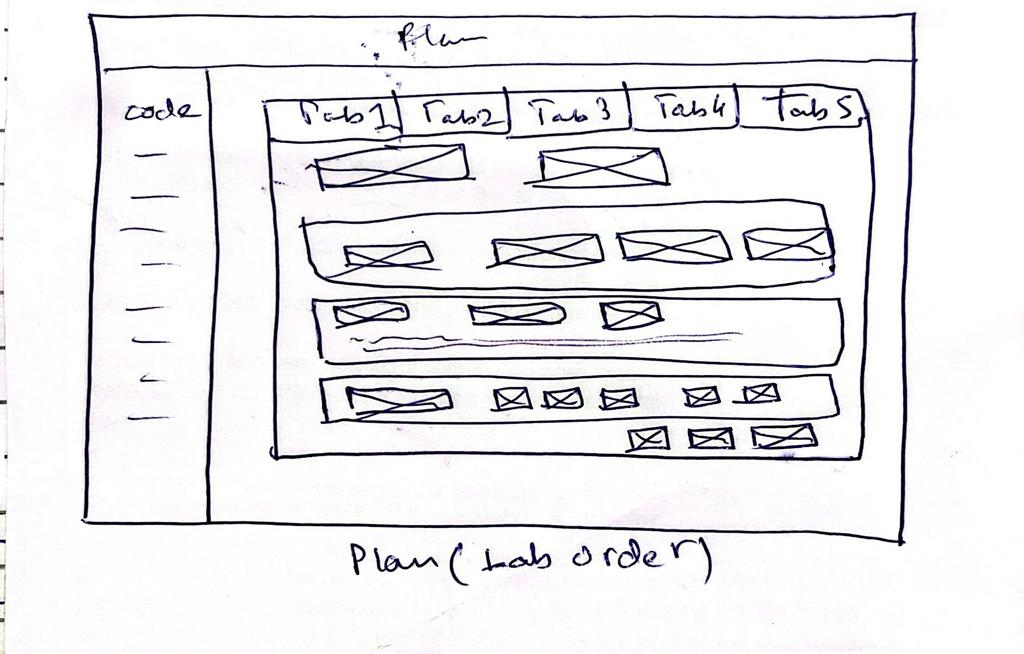 Plan
code
Tab 1 Tab2 Tab 3 Tab4 Tab 5
Plan ( Lab order )